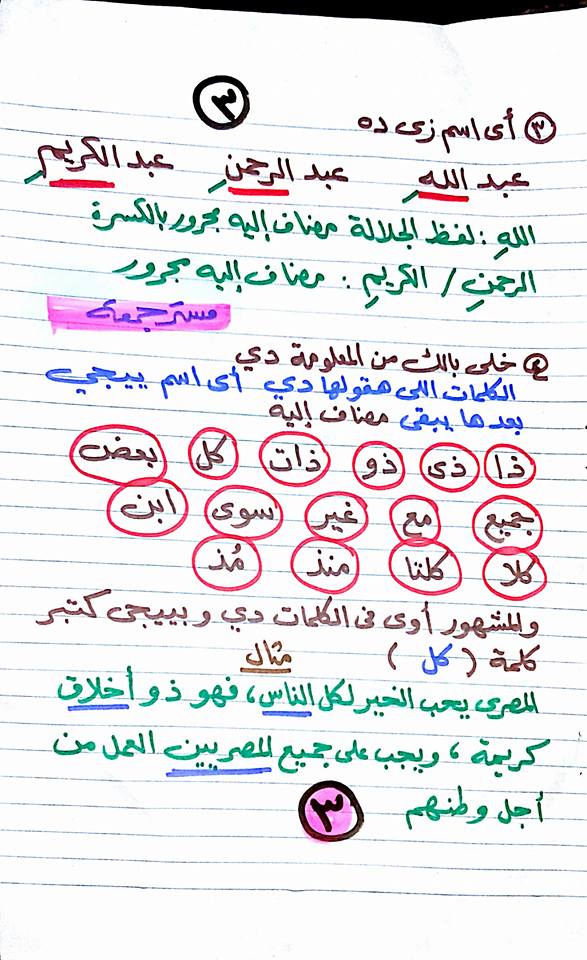 ٣
٣ أى اسم زى ده
عبد اللهِ عبد الرحمنِ عبد الكريمِ
اللهِ : لفظ الجلالة مضاف إليه مجرور بالكسرة
الرحمنِ / الكريمِ : مضاف إليه مجرور
مستر جمعة
٤ خلى بالك من المعلومة دي
الكلمات اللى هقولها دي أى اسم ييجي
بعدها يبقى مضاف إليه
ذا ذى ذو ذات كل بعض
جميع مع غير سوى ابن
كلا كلتا منذ مُذ
والمشهور أوى فى الكلمات دي وبييجى كتير
كلمة ( كل ) مثال
المصرى يحب الخير لكل الناس ، فهو ذو أخلاق
كريمة ، ويجب على جميع المصريين العمل من
أجل وطنهم
٣